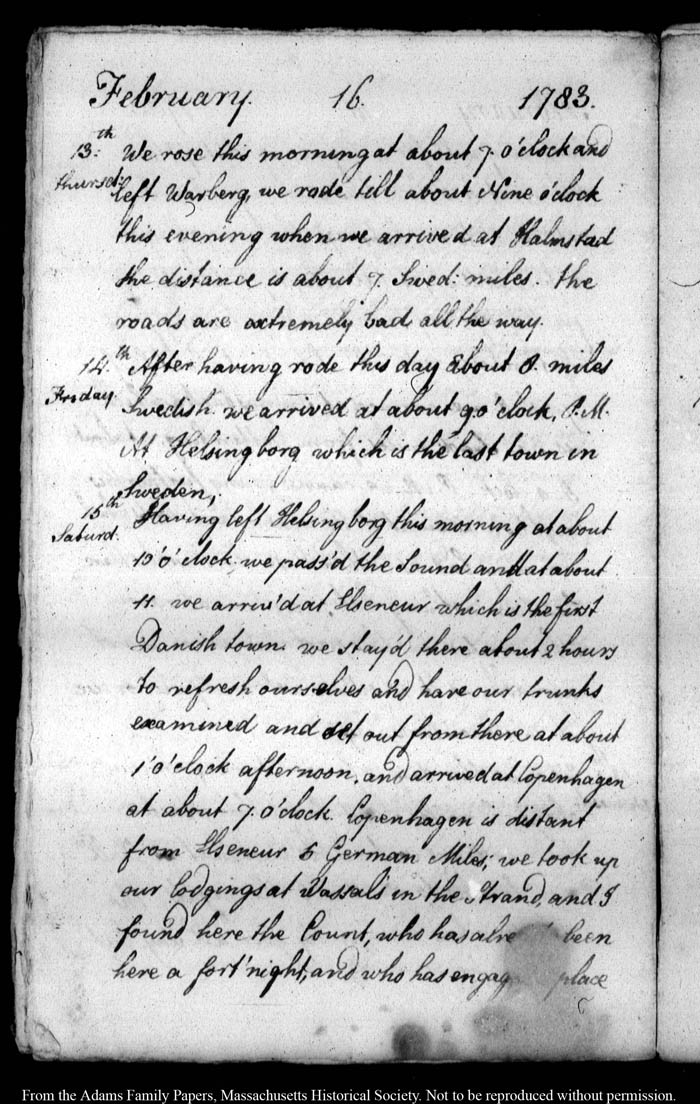 February. 16. 1783.
13.th We rose this morning at about 7. o'clock and
thursd: left Warberg, we rode till about Nine o'clock
this evening when we arrived at Halmstad
the distance is about 7. Swed: miles. the
roads are extremely bad all the way.
14.th After having rode this day about 8. miles
Friday Swedish. we arrived at about 9 o'clock, P.M.
At Helsingborg which is the last town in
Sweden,
15th Having left Helsingborg this morning at about
Saturd. 10 o'clock we pass'd the Sound and at about
11. we arriv'd at Elseneur which is the first
Danish town. we stay'd there about 2 hours
to refresh ourselves and have our trunks
examined and set out from there at about
1 o'clock afternoon, and arrived at Copenhagen
at about 7. o'clock. Copenhagen is distant
from Elseneur 5 German Miles; we took up
our lodgings at Wassals in the Strand, and I
found here the Count, who has been
here a fort'night, and who has place
From the Adams Family Papers, Massachusetts Historical Society. Not to be reproduced without permission.